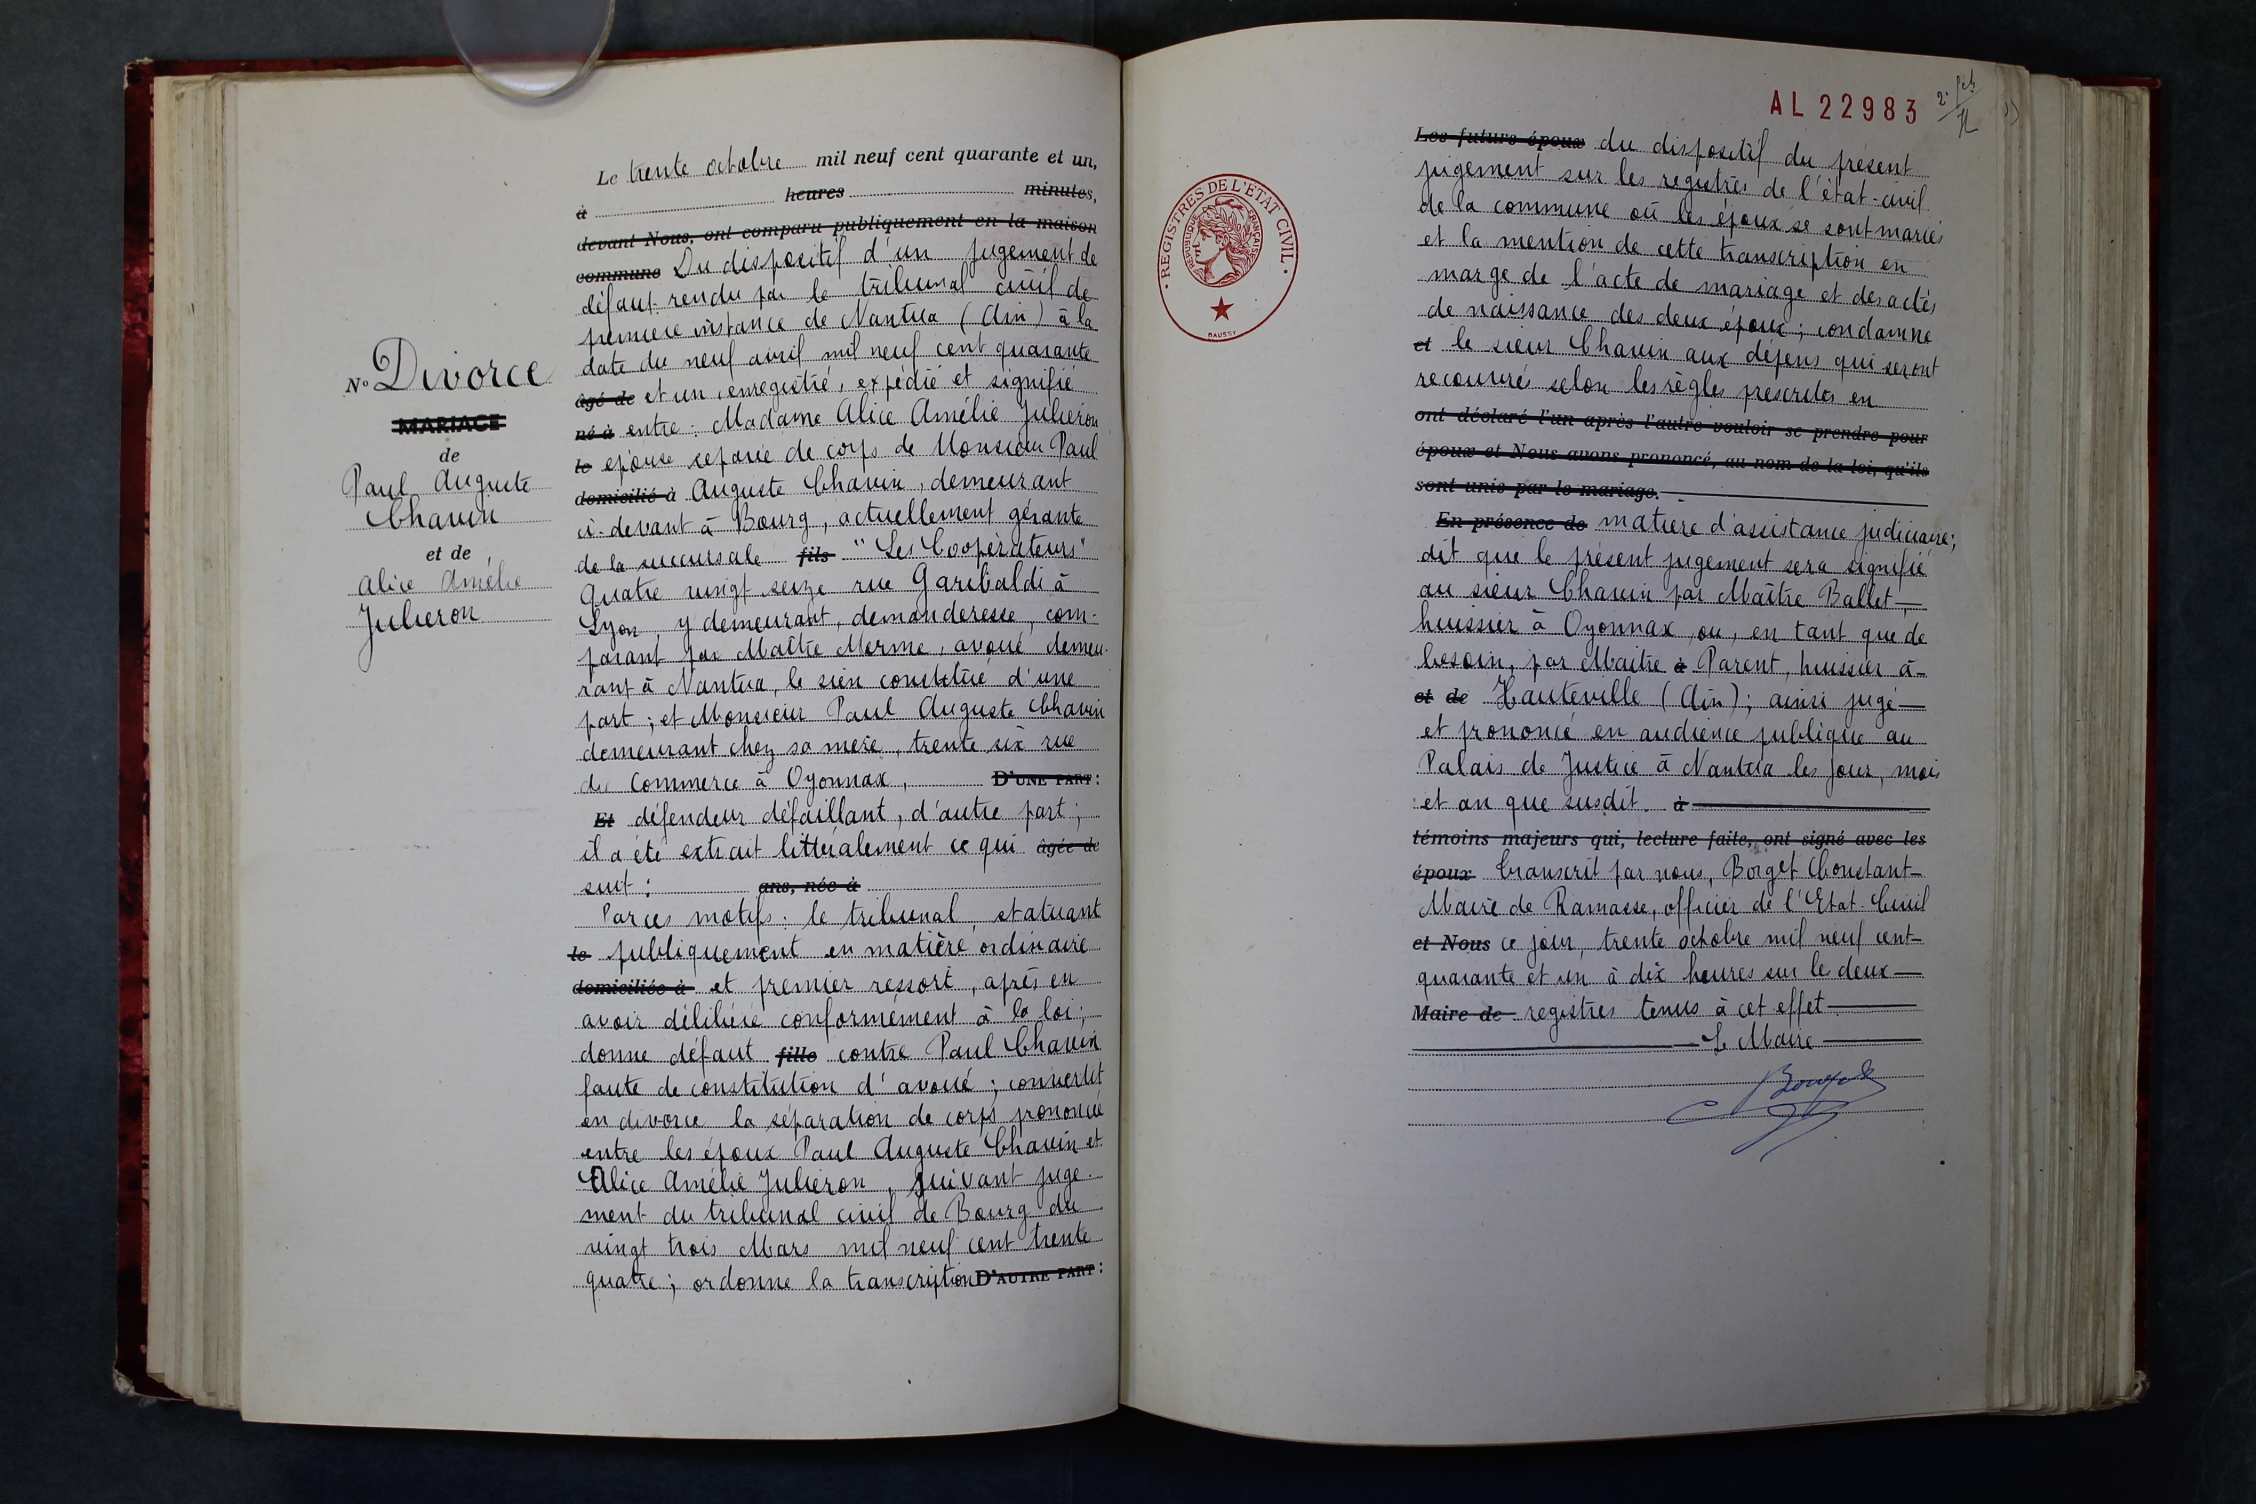 N° Divorce
MARIAGE
de
Paul Auguste
Chavin
et de
Alice Amélie
Julieron
Le trente octobre mil neuf cent quarante et un,
à heures minutes,
devant Nous, ont comparu publiquement en la maison
commune Du dispositif d'un jugement de
défaut rendu par le tribunal civil de
première instance de Nantua (Ain) à la
date du neuf avril mil neuf cent quarante
âgé de et un, enregistré, expédié et signifié
né à entre : Madame Alice Amélie Julieron
le épouse séparée de corps de Monsieur Paul
domicilié à Auguste Chavin, demeurant
ci-devant à Bourg, actuellement gérante
de la succursale fils "Les Coopérateurs"
Quatre vingt seize rue Garibaldi à
Lyon, y demeurant, demanderesse, com-
parant par Maître Merme, avoué demeu-
rant à Nantua, le sien constitué d'une
part ; et Monsieur Paul Auguste Chavin
demeurant chez sa mère, trente six rue
du Commerce à Oyonnax, D'UNE PART :
Et défendeur défaillant, d'autre part ;
il a été extrait littéralement ce qui âgée de
suit : ans, née à
Par ces motifs : le tribunal, statuant
le publiquement en matière ordinaire
domiciliée à et premier ressort, après en
avoir délibéré conformément à la loi ;
donne défaut fille contre Paul Chavin
faute de constitution d'avoué ; convertit
en divorce la séparation de corps prononcée
entre les époux Paul Auguste Chavin et
Alice Amélie Julieron, suivant juge-
ment du tribunal civil de Bourg du
vingt trois Mars mil neuf cent trente
quatre ; ordonne la transcription D'AUTRE PART :
AL 22983
REGISTRES DE L'ETAT CIVIL
REPUBLIQUE FRANÇAISE
DAUSSY
Les futurs époux du dispositif du présent
jugement sur les registres de l'état-civil
de la commune où les époux se sont mariés
et la mention de cette transcription en
marge de l'acte de mariage et des actes
de naissance des deux époux ; condamne
et le sieur Chavin aux dépens qui seront
recouvrés selon les règles prescrites en
ont déclaré l'un après l'autre vouloir se prendre pour
époux et Nous avons prononcé, au nom de la loi, qu'ils
sont unis par le mariage.
En présence de matière d'assistance judiciaire ;
dit que le présent jugement sera signifié
au sieur Chavin par Maître Ballet,
huissier à Oyonnax, ou, en tant que de
besoin, par Maître à Parent, huissier à
et de Hauteville (Ain) ; ainsi jugé
et prononcé en audience publique au
Palais de Justice à Nantua les jour, mois
et an que susdit. à
témoins majeurs qui, lecture faite, ont signé avec les
époux Transcrit par nous, Borget Constant
Maire de Ramasse, officier de l'Etat-Civil
et Nous ce jour, trente octobre mil neuf cent
quarante et un à dix heures sur les deux
Maire de registres tenus à cet effet
Le Maire